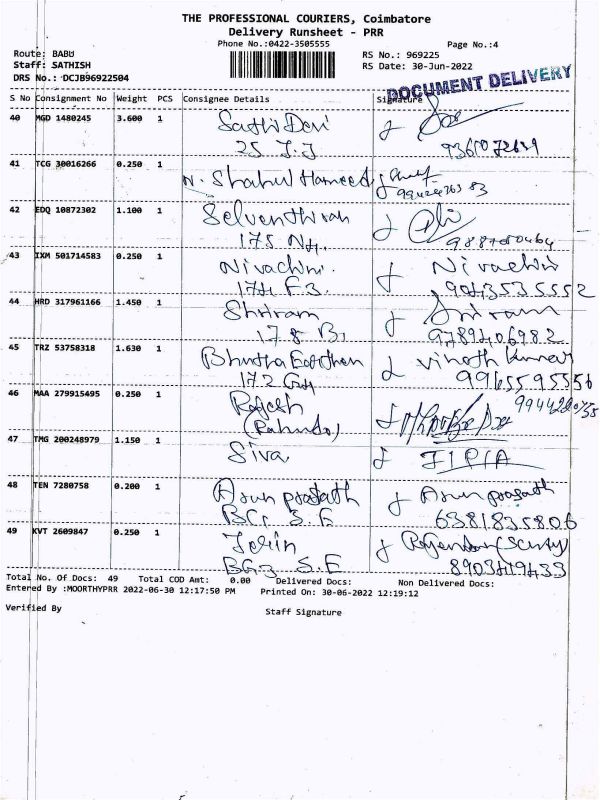 THE PROFESSIONAL COURIERS, Coimbatore
Delivery Runsheet - PRR
Phone No.:0422-3505555
Page No.:4
Route: BABU
Staff: SATHISH
DRS No.: DCJB96922504
RS No.: 969225
RS Date: 30-Jun-2022
DOCUMENT DELIVERY
S No Consignment No Weight PCS Consignee Details Signature
40 MGD 1480245 3.600 1 Sathi Devi
25 J.J
41 TCG 30016266 0.250 1 N. Shahul Hameed
42 EDQ 10872302 1.100 1 Selventhiran
175
43 IXM 501714583 0.250 1 Nivachini Nivachini
174 F3. 9043535552
44 HRD 317961166 1.450 1 Shriram Sriram
178 B1 9789406982
45 TRZ 53758318 1.630 1 Vinoth Kumar
172 9965595556
46 MAA 279915495 0.250 1 Rajesh
47 TMG 200248979 1.150 1 Siva
48 TEN 7280758 0.200 1 Arun prasath Arun prasath
S.F 6381835806
49 KVT 2609847 0.250 1 Jerin
BG3 S.F 8903419433
Total No. Of Docs: 49 Total COD Amt: 0.00 Delivered Docs: Non Delivered Docs:
Entered By :MOORTHYPRR 2022-06-30 12:17:50 PM Printed On: 30-06-2022 12:19:12
Verified By Staff Signature